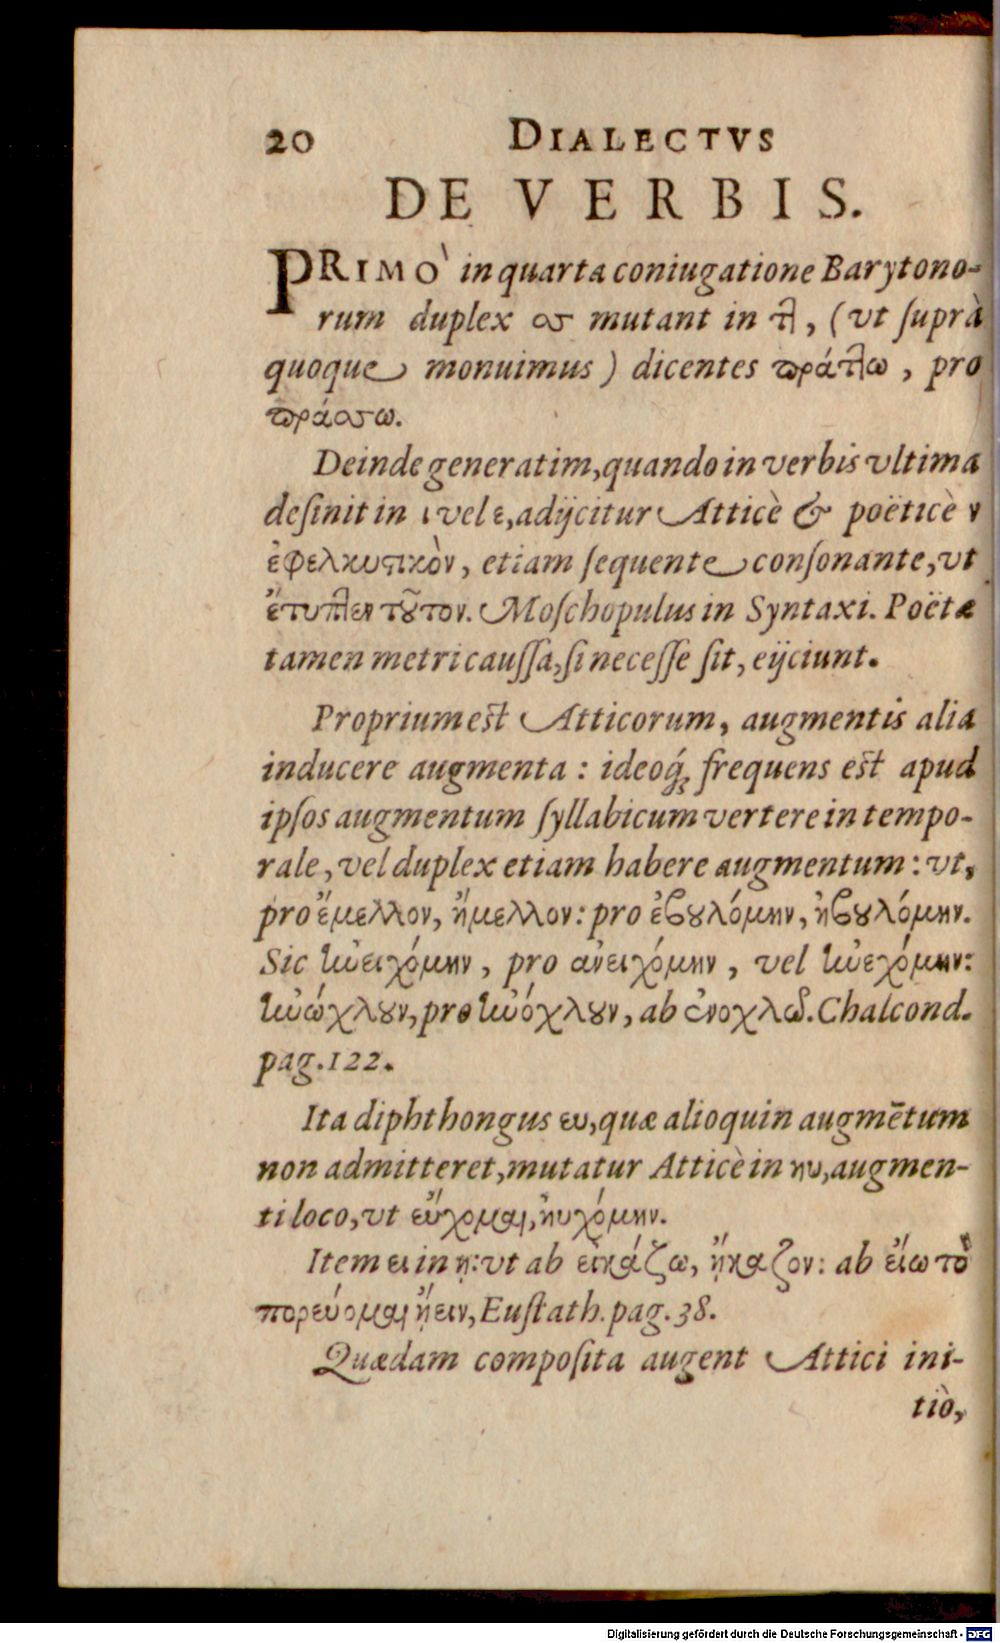 20 DIALECTVS
DE VERBIS.
PRIMÒ in quarta coniugatione Barytono-
rum duplex σσ mutant in ττ, (vt ſuprà
quoque monuimus) dicentes πράττω, pro
πράσσω.
Deinde generatim, quando in verbis vltima
deſinit in ι vel ε, adijcitur Atticè & poëticè ν
ἐφελκυστικὸν, etiam ſequente conſonante, vt
ἔτυπτεν τοῦτον. Moſchopulus in Syntaxi. Poëtæ
tamen metri cauſſa, ſi neceſſe ſit, eijciunt.
Proprium est Atticorum, augmentis alia
inducere augmenta: ideoq; frequens est apud
ipſos augmentum ſyllabicum vertere in tempo-
rale, vel duplex etiam habere augmentum: vt,
pro ἔμελλον, ἤμελλον: pro ἐβουλόμην, ἠβουλόμην.
Sic ἠνειχόμην, pro ἀνειχόμην, vel ἠνεχόμην:
ἠνώχλουν, pro ἠνόχλουν, ab ἐνοχλῶ. Chalcond.
pag. 122.
Ita diphthongus ευ, quæ alioquin augmētum
non admitteret, mutatur Atticè in ηυ, augmen-
ti loco, vt εὔχομαι, ηὐχόμην.
Item ει in ῃ: vt ab εἰκάζω, ᾔκαζον: ab εἴω τὸ
πορεύομαι ᾔειν, Euſtath. pag. 38.
Quædam compoſita augent Attici ini-
tiò,
Digitalisierung gefördert durch die Deutsche Forschungsgemeinschaft - DFG